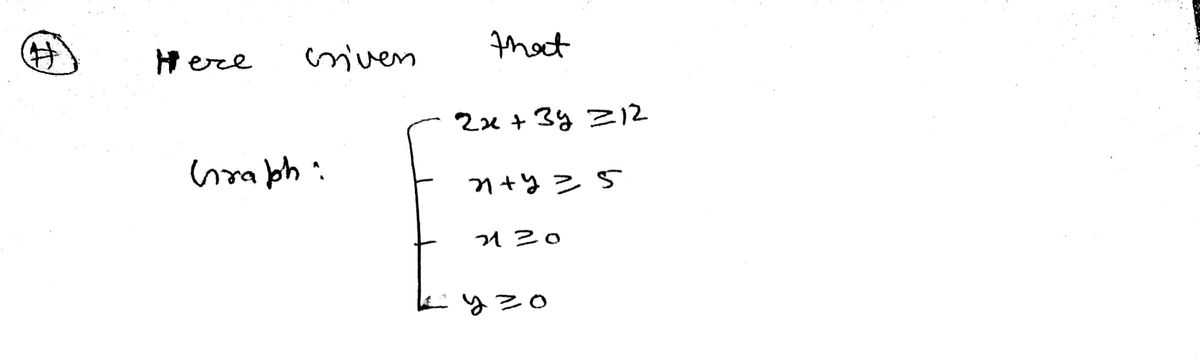 # Here Given that
2x + 3y ≥ 12
Graph:
x + y ≥ 5
x ≥ 0
y ≥ 0